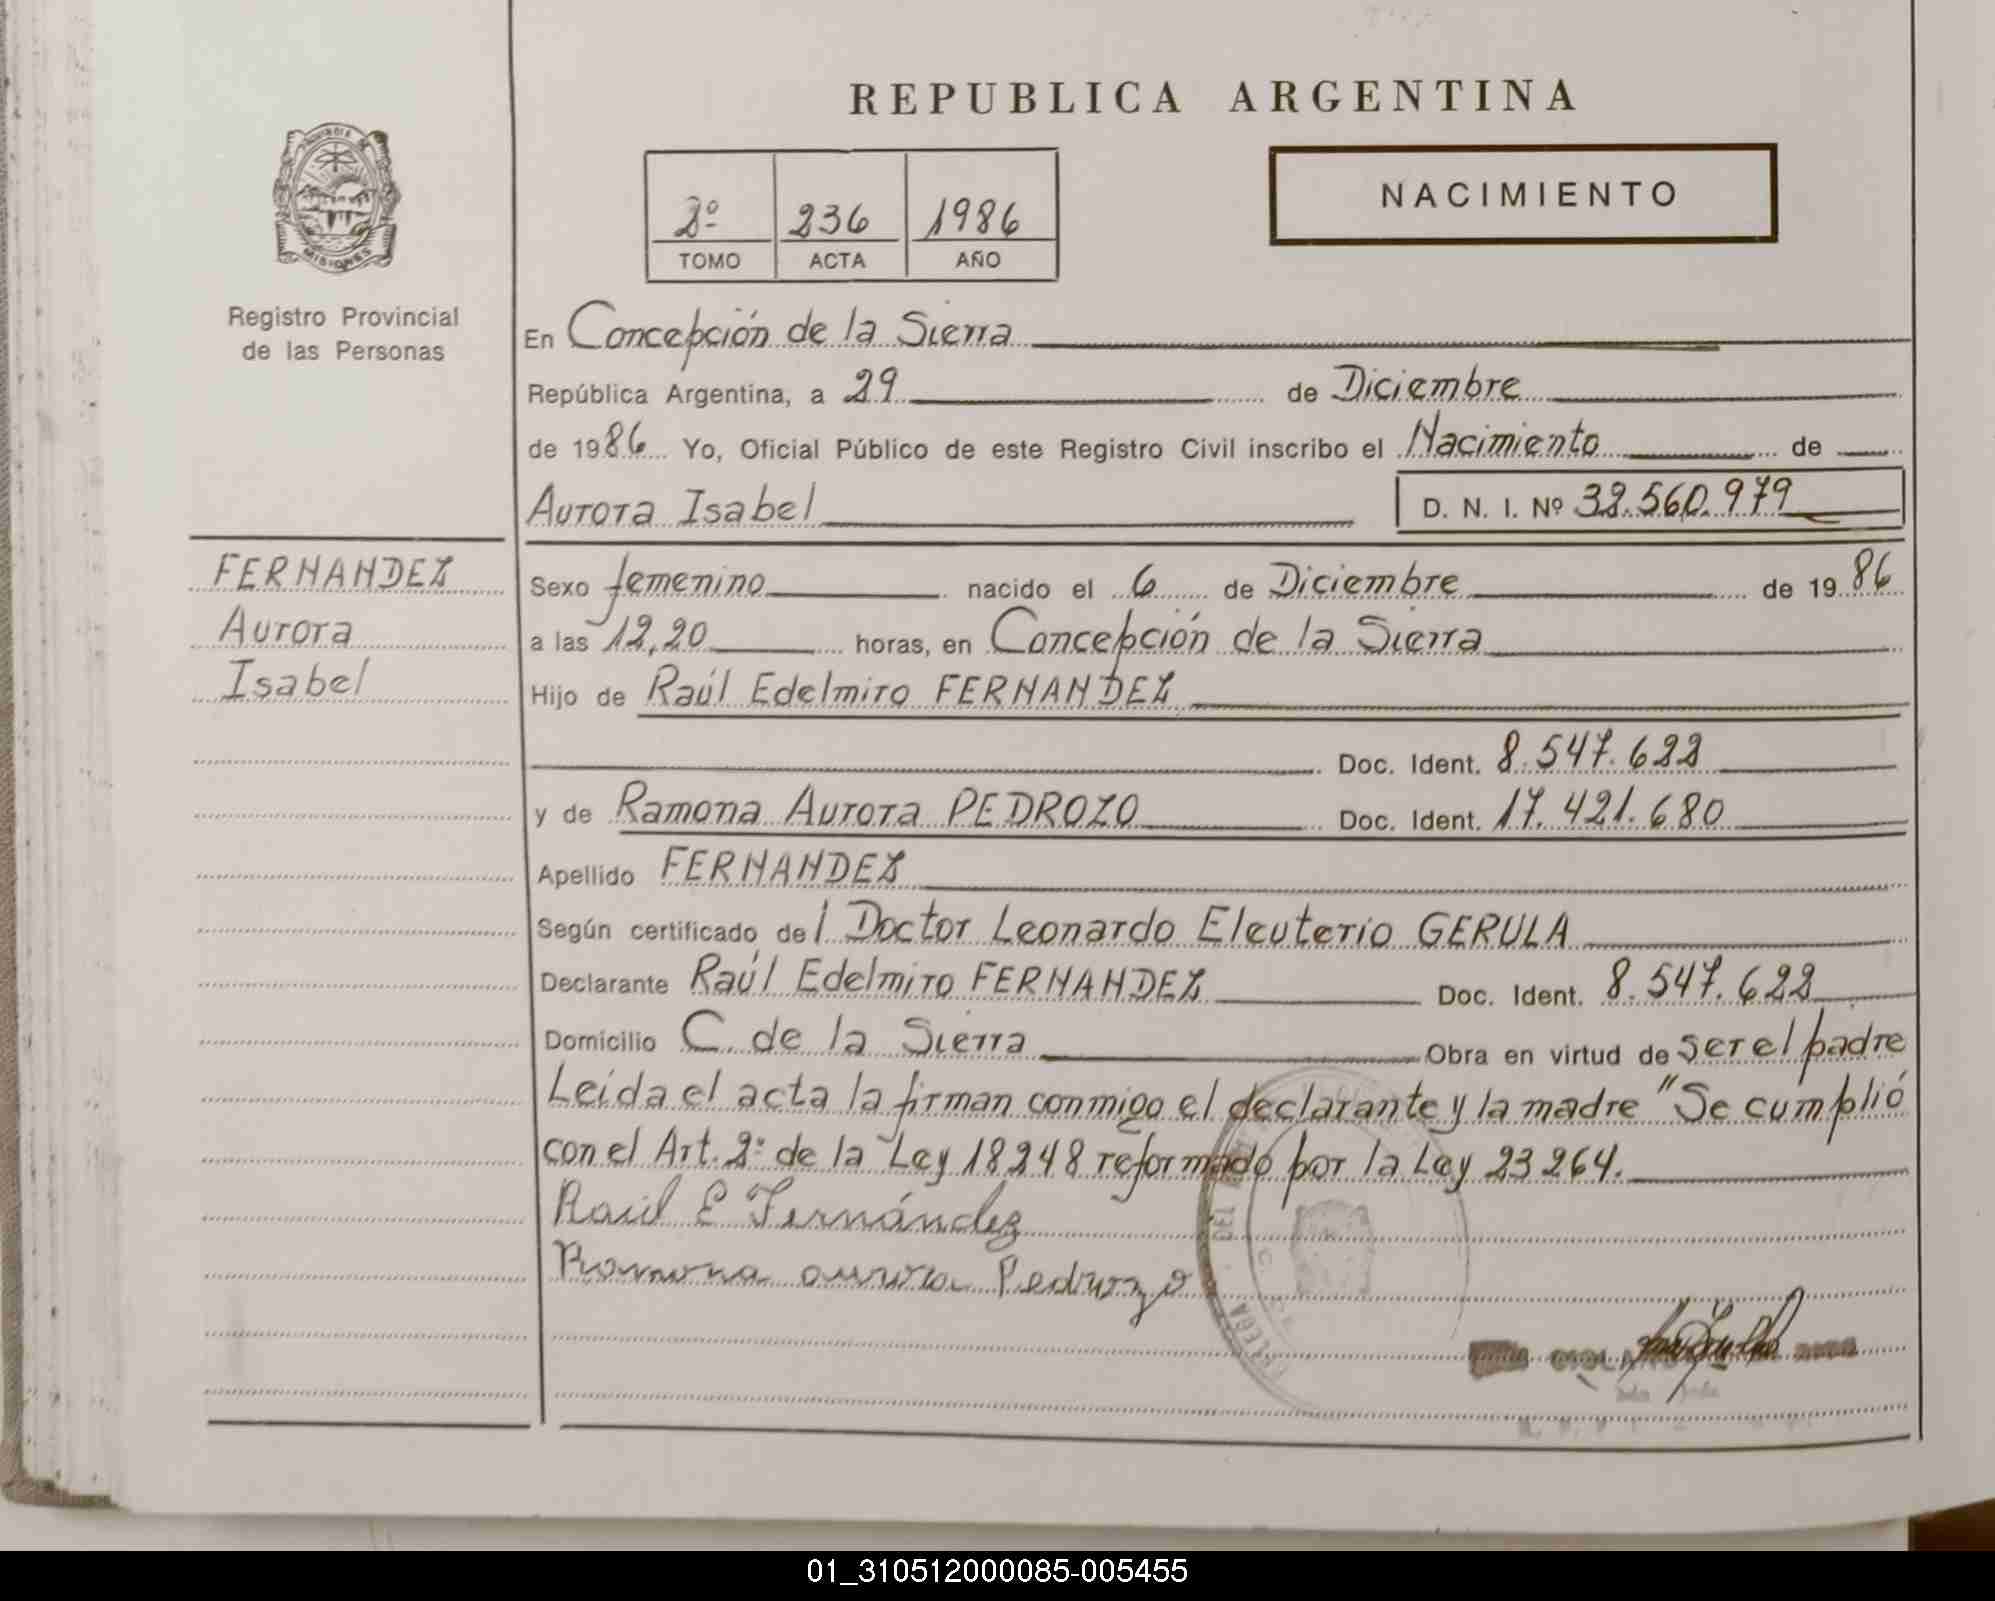 REPUBLICA ARGENTINA
NACIMIENTO
2º 236 1986
TOMO ACTA AÑO
MISIONES
Registro Provincial
de las Personas
En Concepción de la Sierra
República Argentina, a 29 de Diciembre
de 1986 Yo, Oficial Público de este Registro Civil inscribo el Nacimiento de
Aurora Isabel D. N. I. Nº 32.560.979
FERNANDEZ
Aurora
Isabel
Sexo femenino nacido el 6 de Diciembre de 1986
a las 12,20 horas, en Concepción de la Sierra
Hijo de Raúl Edelmiro FERNANDEZ
Doc. Ident. 8.547.622
y de Ramona Aurora PEDROZO Doc. Ident. 17.421.680
Apellido FERNANDEZ
Según certificado del Doctor Leonardo Eleuterio GERULA
Declarante Raúl Edelmiro FERNANDEZ Doc. Ident. 8.547.622
Domicilio C. de la Sierra Obra en virtud de ser el padre
Leída el acta la firman conmigo el declarante y la madre "Se cumplió
con el Art. 2º de la Ley 18248 reformado por la Ley 23264.
Raúl E Fernández
Ramona aurora Pedrozo
01_310512000085-005455